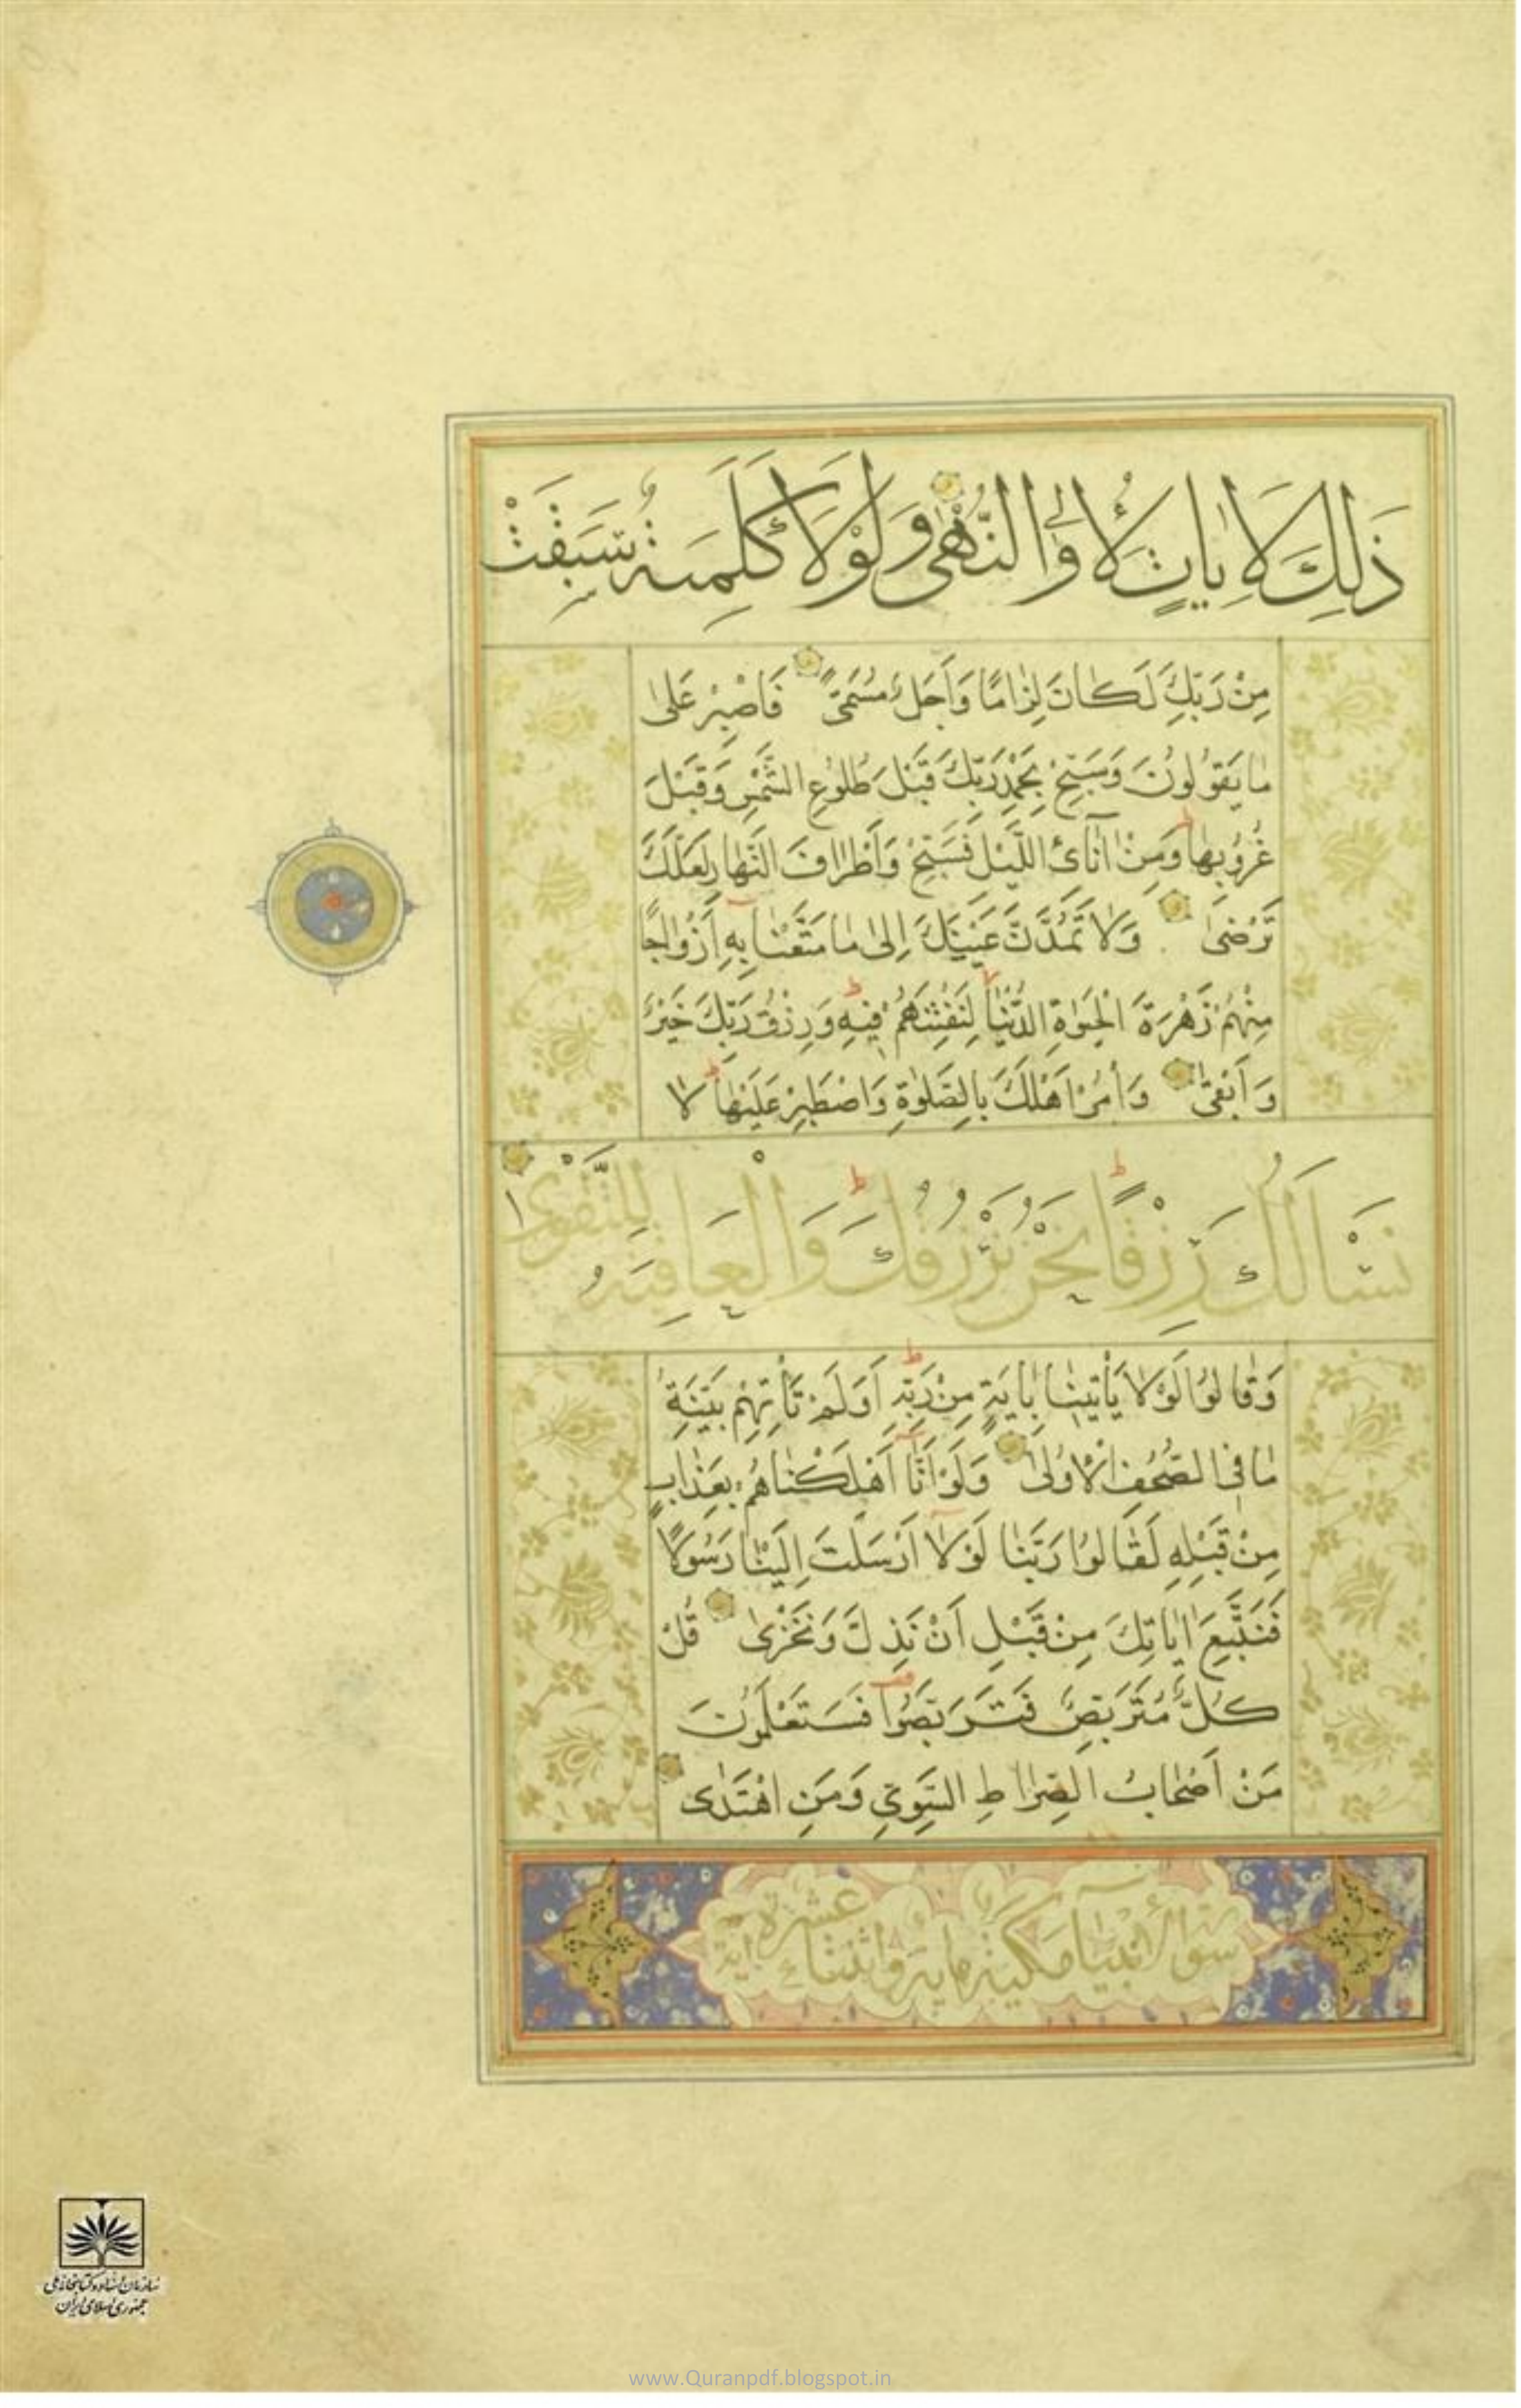 ذَلِكَ لَاٰيَاتٍ لِأُولِي النُّهٰى وَلَوْلَا كَلِمَةٌ سَبَقَتْ
مِنْ رَبِّكَ لَكَانَ لِزَامًا وَأَجَلٌ مُسَمًّى فَاصْبِرْ عَلٰى
مَا يَقُولُونَ وَسَبِّحْ بِحَمْدِ رَبِّكَ قَبْلَ طُلُوعِ الشَّمْسِ وَقَبْلَ
غُرُوبِهَا وَمِنْ اٰنَائِ اللَّيْلِ فَسَبِّحْ وَأَطْرَافَ النَّهَارِ لَعَلَّكَ
تَرْضٰى وَلَا تَمُدَّنَّ عَيْنَيْكَ إِلٰى مَا مَتَّعْنَا بِهِ أَزْوَاجًا
مِنْهُمْ زَهْرَةَ الْحَيٰوةِ الدُّنْيَا لِنَفْتِنَهُمْ فِيهِ وَرِزْقُ رَبِّكَ خَيْرٌ
وَأَبْقٰى وَأْمُرْ أَهْلَكَ بِالصَّلٰوةِ وَاصْطَبِرْ عَلَيْهَا لَا
نَسْأَلُكَ رِزْقًا نَحْنُ نَرْزُقُكَ وَالْعَاقِبَةُ لِلتَّقْوٰى
وَقَالُوا لَوْلَا يَأْتِينَا بِاٰيَةٍ مِنْ رَبِّهِ أَوَلَمْ تَأْتِهِمْ بَيِّنَةُ
مَا فِي الصُّحُفِ الْأُولٰى وَلَوْ أَنَّا أَهْلَكْنَاهُمْ بِعَذَابٍ
مِنْ قَبْلِهِ لَقَالُوا رَبَّنَا لَوْلَا أَرْسَلْتَ إِلَيْنَا رَسُولًا
فَنَتَّبِعَ اٰيَاتِكَ مِنْ قَبْلِ أَنْ نَذِلَّ وَنَخْزٰى قُلْ
كُلٌّ مُتَرَبِّصٌ فَتَرَبَّصُوا فَسَتَعْلَمُونَ
مَنْ أَصْحَابُ الصِّرَاطِ السَّوِيِّ وَمَنِ اهْتَدٰى
سورة الأنبيا مكية ماية واثنتا عشرة اية
سازمان اسناد و کتابخانه ملی
جمهوری اسلامی ایران
www.Quranpdf.blogspot.in